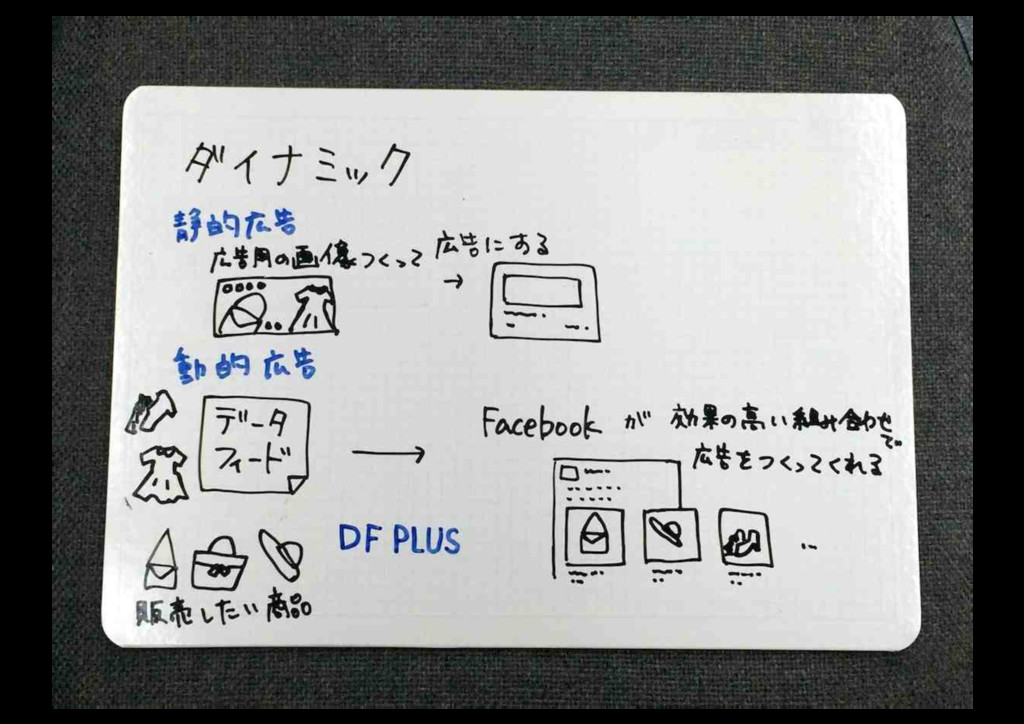 ダイナミック
静的広告
広告用の画像つくって → 広告にする
動的広告
データ
フィード
Facebook が 効果の高い組み合わせで
広告をつくってくれる
DF PLUS
販売したい商品